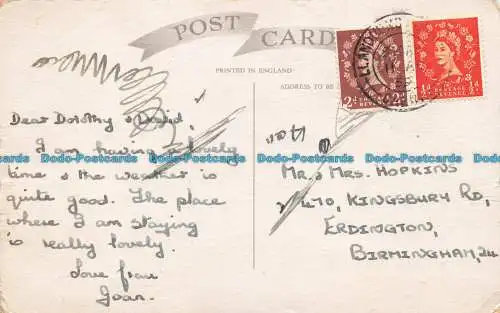 POST CARD
PRINTED IN ENGLAND
ADDRESS TO BE
2D
POSTAGE REVENUE
½D
Dear Dorothy & David,
I am having a lovely
time & the weather is
quite good. The place
where I am staying
is really lovely.
Love from
Joan.
Mr. & Mrs. HOPKINS
470, KINGSBURY RD,
ERDINGTON,
BIRMINGHAM, 24
Dodo-Postcards Dodo-Postcards Dodo-Postcards Dodo-Postcards Dodo-Postcards Dodo-Postcards